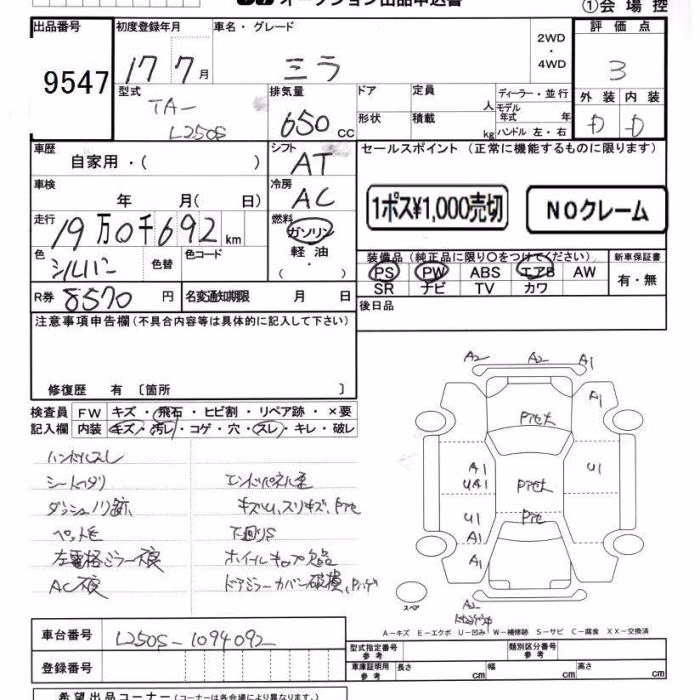 オークション出品申込書
①会場控
出品番号 初度登録年月 車名・グレード 評価点
9547 17 7月 ミラ 2WD・4WD 3
型式 排気量 ドア 定員 人 ディーラー・並行 外装 内装
TA-L250S 650 CC 形状 積載 kg モデル年式 年 ハンドル 左・右 D D
車歴 シフト セールスポイント (正常に機能するものに限ります)
自家用・( ) AT
車検 冷房
年 月( 日) AC 1ポス¥1,000売切 NOクレーム
走行 燃料
19万0千692km ガソリン 軽油 ・( )
色 色替 色コード 装備品 (純正品に限り○をつけてください) 新車保証書
シルバー PS PW ABS エアB AW 有・無
SR ナビ TV カワ
R券 8570円 名変通知期限 月 日 後日品
注意事項申告欄(不具合内容等は具体的に記入して下さい)
修復歴 有 [箇所 ]
検査員 FW キズ・飛石・ヒビ割・リペア跡・×要
記入欄 内装 キズ・汚レ・コゲ・穴・スレ・キレ・破レ
ハンドルスレ
シートヘタリ
ダッシュノリ跡
ペット毛
左電格ミラー不良
AC不良
キズU、スリキズ、
下回りS
ホイールキャップ欠品
ドアミラーカバー破損
A2 A2 A1
A1
A1 U1
UA1
U1
A1
A1
A2
スペア
A−キズ E−エクボ U−凹み W−補修跡 S−サビ C−腐食 XX−交換済
車台番号 L250S-1094092
登録番号
型式指定番号 参考 類別区分番号 参考
車庫証明用 参考 長さ cm 幅 cm 高さ cm
希望出品コーナー(コーナーは各会場により異なります。)